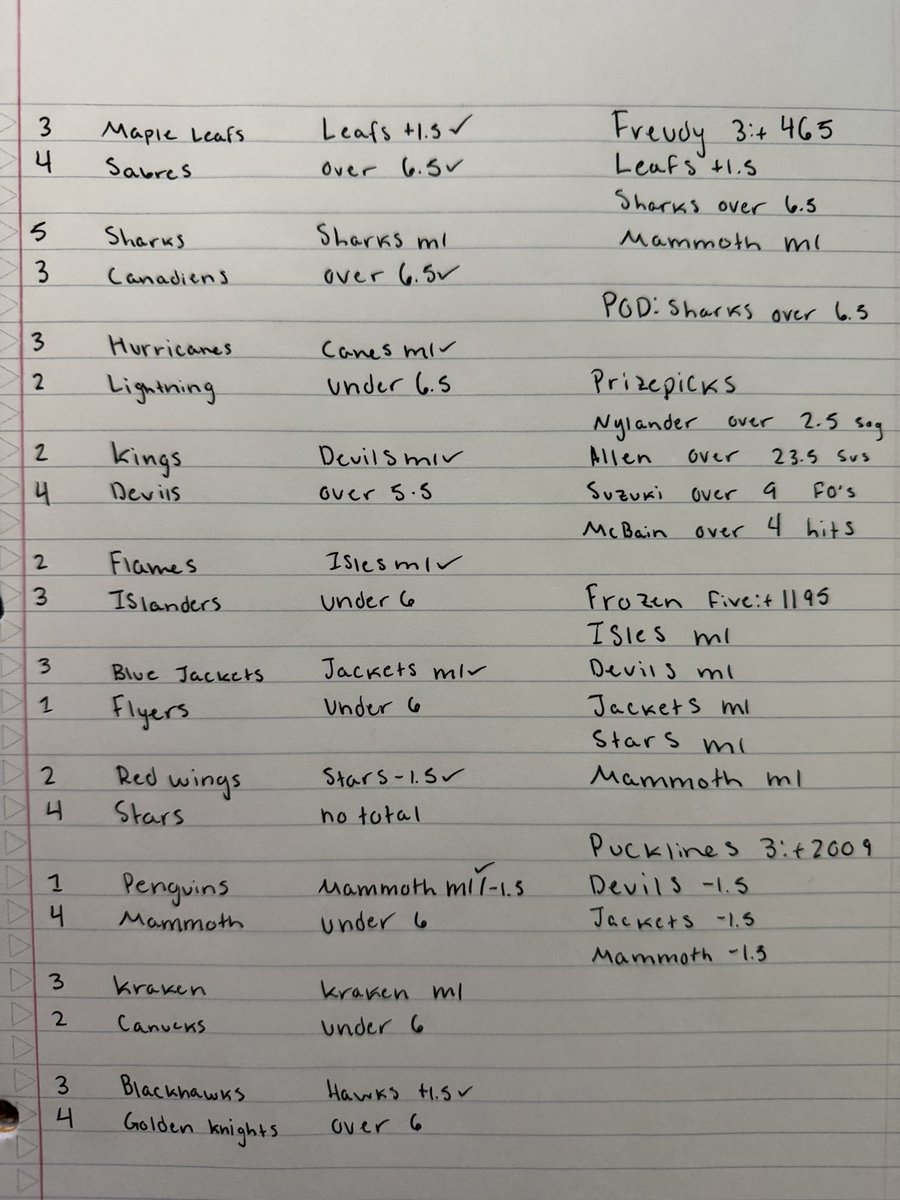 3 Maple Leafs Leafs +1.5 ✓ Freudy 3:+ 465
4 Sabres over 6.5 ✓ Leafs +1.5
Sharks over 6.5
5 Sharks Sharks ml Mammoth ml
3 Canadiens over 6.5 ✓
POD: Sharks over 6.5
3 Hurricanes Canes ml ✓
2 Lightning under 6.5 Prizepicks
Nylander over 2.5 sog
2 Kings Devils ml ✓ Allen over 23.5 svs
4 Devils over 5.5 Suzuki over 9 FO's
McBain over 4 hits
2 Flames Isles ml ✓
3 Islanders under 6 Frozen Five:+ 1195
Isles ml
3 Blue Jackets Jackets ml ✓ Devils ml
1 Flyers under 6 Jackets ml
Stars ml
2 Red wings Stars -1.5 ✓ Mammoth ml
4 Stars no total
Pucklines 3:+2009
1 Penguins Mammoth ml ✓/-1.5 Devils -1.5
4 Mammoth under 6 Jackets -1.5
Mammoth -1.5
3 Kraken Kraken ml
2 Canucks under 6
3 Blackhawks Hawks +1.5 ✓
4 Golden Knights over 6